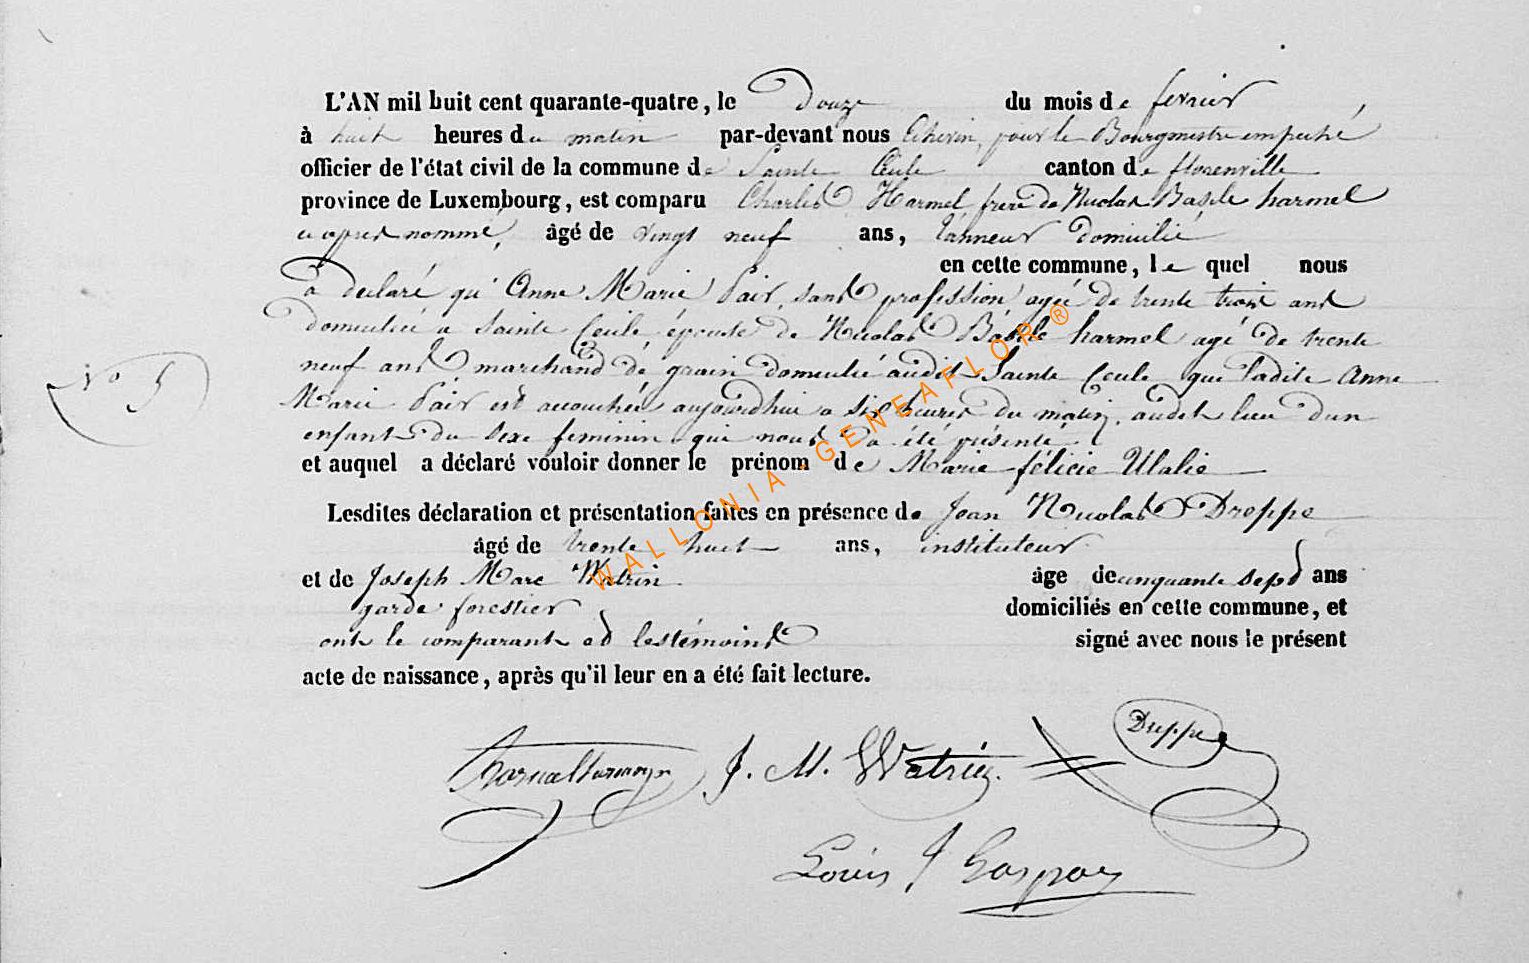 L'AN mil huit cent quarante-quatre, le Douze du mois de fevrier
à huit heures du matin par-devant nous Echevin, pour le Bourgmestre empeché
officier de l'état civil de la commune de Sainte Cecile canton de florenville
province de Luxembourg, est comparu Charles Harmel frere de Nicolas Basile harmel
ci apres nommé, âgé de vingt neuf ans, tanneur domicilié
en cette commune, le quel nous
a declaré qu'Anne Marie Pair, sans profession agée de trente trois ans
domiciliée a Sainte Cecile épouse de Nicolas Basile harmel agé de trente
neuf ans marchand de grain domicilié audit Sainte Cecile que ladite Anne
N° 5
Marie Pair est accouchée aujourdhui a six heures du matin, audit lieu dun
enfant du sexe feminin qui nous a été présenté
et auquel a déclaré vouloir donner le prénom de Marie félicie Ulalie
Lesdites déclaration et présentation faites en présence de Jean Nicolas Dreppe
âgé de trente huit ans, instituteur
et de Joseph Marc Watrin âge de cinquante sept ans
garde forestier domiciliés en cette commune, et
ont le comparant et les témoins signé avec nous le présent
acte de naissance, après qu'il leur en a été fait lecture.
Dreppe
J. M. Watrin
Louis J Gaspar
WALLONIA-GENEAFLOR®